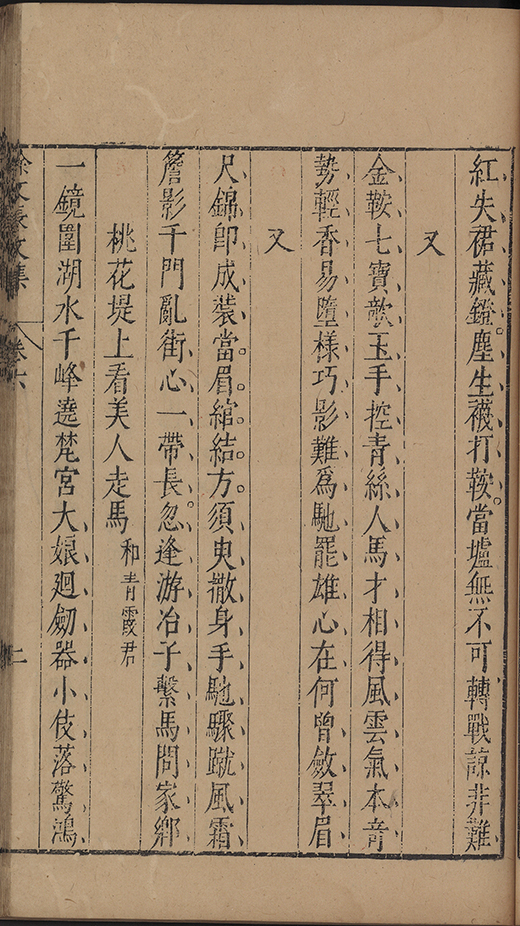 紅失裙藏鐙塵生襪打鞍當壚無不可轉戰諒非難
又
金鞍七寶欹玉手控青絲人馬才相得風雲氣本奇
勢輕香易墮樣巧影難爲馳罷雄心在何曾斂翠眉
又
尺錦即成裝當眉綰結方須臾撒身手馳驟蹴風霜
簷影千門亂街心一帶長忽逢游冶子繫馬問家鄉
桃花堤上看美人走馬和青霞君
一鏡圍湖水千峰遶梵宮大娘廻劒器小伎落驚鴻
徐文長文集 卷六 二